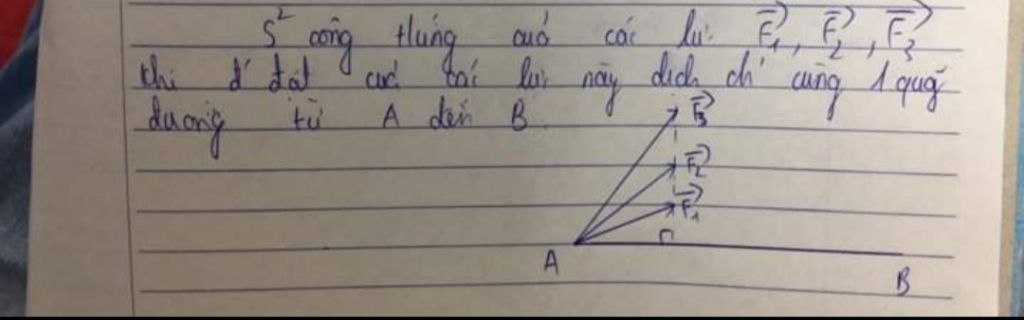 S² công thúng cuả các lự F₁, F₂, F₃
khi đ' đặt cuả các lực này dịch ch' cùng 1 quãg
đương từ A đến B
F₃
F₂
F₁
A
B